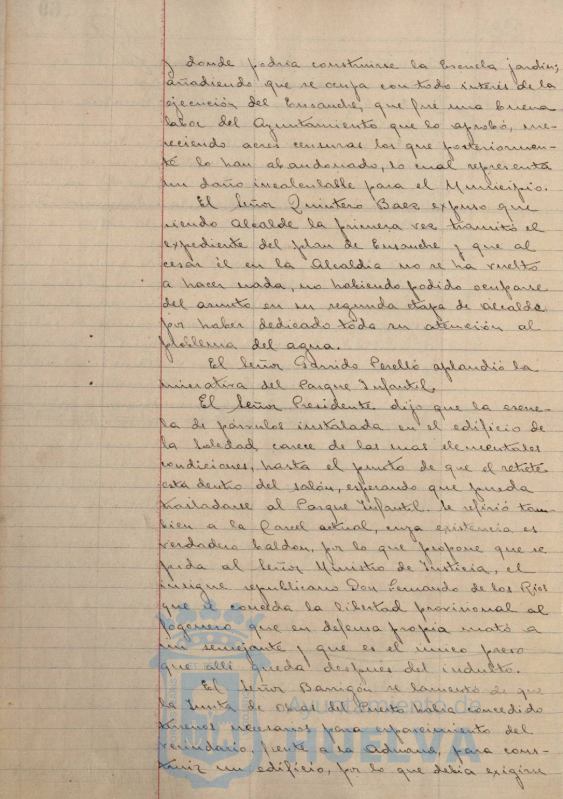 y donde podría construirse la Escuela jardín;
añadiendo que se ocupa con todo interés de la
ejecución del Ensanche, que fué una buena
labor del Ayuntamiento que lo aprobó, me-
reciendo acres censuras los que posteriormen-
te lo han abandonado, lo cual representa
un daño incalculable para el Municipio.
El Señor Quintero Baez expuso que
siendo Alcalde la primera vez tramitó el
expediente del plan de Ensanche y que al
cesar él en la Alcaldía no se ha vuelto
a hacer nada, no habiendo podido ocuparse
del asunto en su segunda etapa de alcalde
por haber dedicado toda su atención al
problema del agua.
El Señor Garrido Perelló aplaudió la
iniciativa del Parque Infantil.
El Señor Presidente dijo que la escue-
la de párvulos instalada en el edificio de
la Soledad, carece de las mas elementales
condiciones, hasta el punto de que el retrete
está dentro del salón, esperando que pueda
trasladarse al Parque Infantil. Se refirió tam-
bien a la Carcel actual, cuya existencia es
verdadero baldon, por lo que propone que se
pida al Señor Ministro de Justicia, el
insigne republicano Don Fernando de los Rios
que se conceda la libertad provisional al
fogonero que en defensa propia mató a
un semejante y que es el único preso
que allí queda después del indulto.
El Señor Barrigón se lamentó de que
la Junta de Obras del Puerto haya concedido
terrenos necesarios para esparcimiento del
vecindario, frente a la Aduana, para cons-
truir un edificio, por lo que debía exigirse
Ayuntamiento de
HUELVA